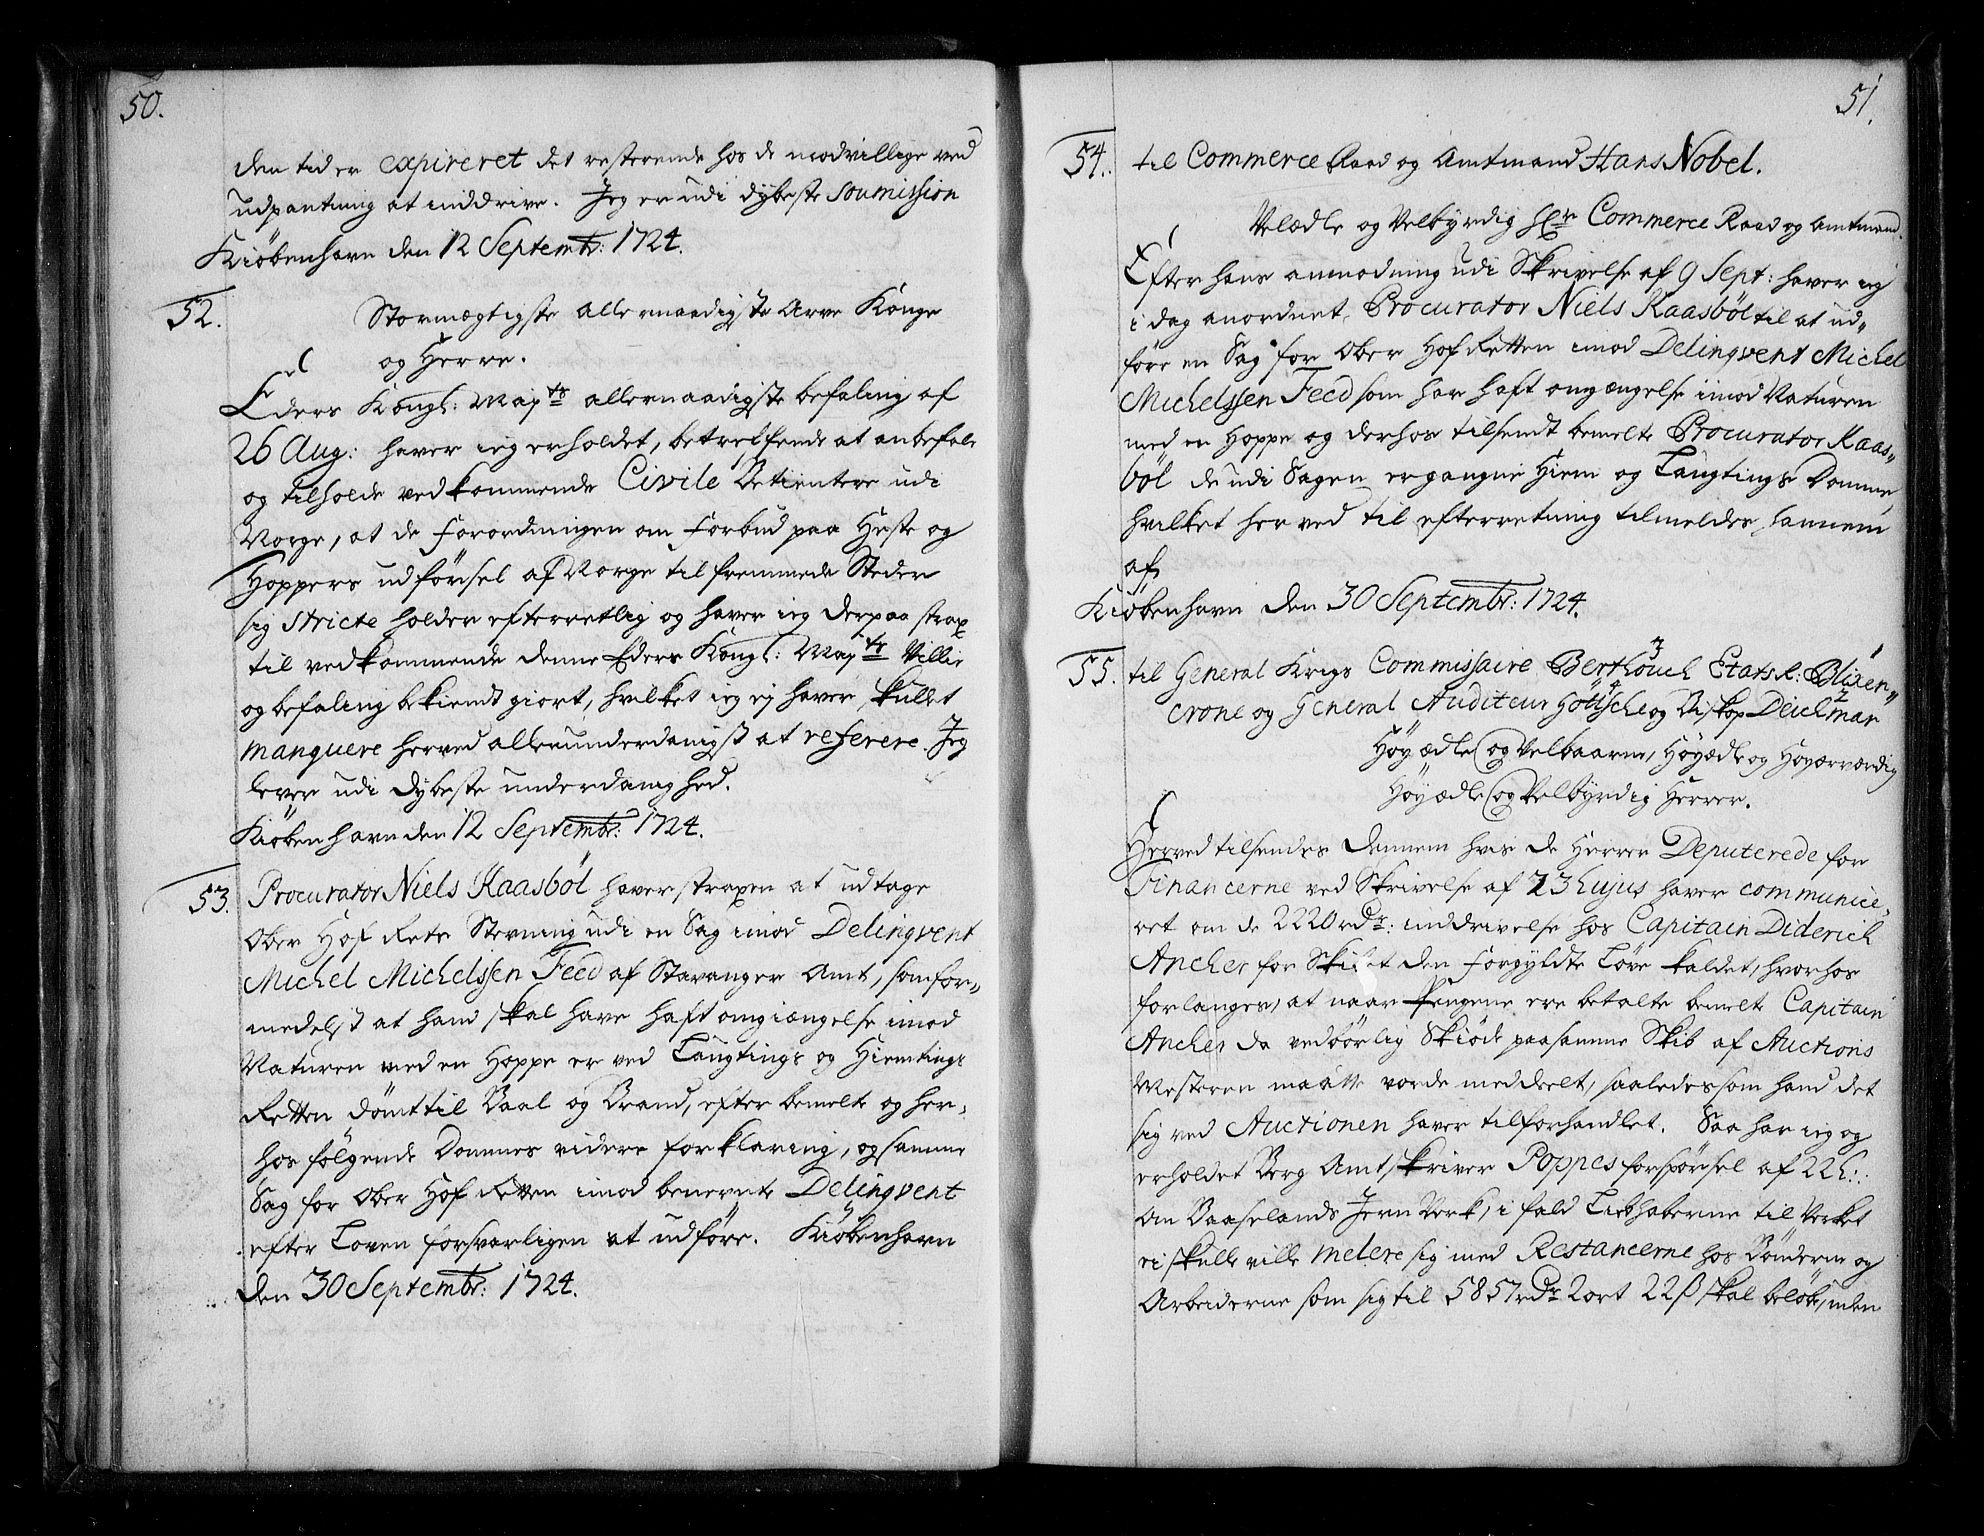 50.
den tid er expireret det resterende hos de modvillige ved
udpantning at inddrive. Jeg er udi dybeste Soumission
Kiöbenhavn den 12 Septembr: 1724.
52. Stormægtigste allernaadigste Arve Konge
og Herre.
Eders Kongl: Mayts allernaadigste befaling af
26 Aug: haver ieg erholdet, betreffende at anbefale
og tilholde vedkommende Civile Betientere udi
Norge, at de Forordningen om Forbud paa Heste og
Hoppers udförsel af Norge til fremmede Steder
sig stricte holder efterretlig og haver ieg derpaa strax
til vedkommende denne Eders Kongl: Mayts Villie
og befaling bekiendt giort, hvilket ieg ej haver skullet
manquere herved allerunderdanigst at referere. Jeg
lever udi dybeste underdanighed.
Kiöbenhavn den 12 Septembr: 1724.
53. Procurator Niels Kaasböl haver straxen at udtage
Ober Hof Rets Stevning udi en Sag imod Delinqvent
Michel Michelssen Feed af Stavanger Amt, som for-
medelst at hand skal have haft omgiængelse imod
Naturen med en Hoppe er ved Laugtings og Hiemtings
Retten dömt til Baal og Brand, efter bemelte og her-
hos fölgende Dommes videre forklaring, og samme
Sag for Ober Hof Retten imod benevnte Delinqvent
efter Loven forsvarligen at udföre. Kiöbenhavn
den 30 Septembr: 1724.
51.
54. til Commerce Raad og Amtmand Hans Nobel.
Velædle og Velbyrdig Hr Commerce Raad og Amtmand.
Efter hans anmodning udi Skrivelse af 9 Sept: haver ieg
i dag anordnet Procurator Niels Kaasböl til at ud-
före en Sag for Ober Hof Retten imod Delinqvent Michel
Michelssen Feed som har haft omgængelse imod Naturen
med en Hoppe og derhos tilsendt bemelte Procurator Kaas-
böl de udi Sagen ergangne Hiem og Laugtings Domme,
hvilket herved til efterretning tilmeldes hannem
af
Kiöbenhavn den 30 Septembr: 1724.
55. til General Krigs Commissaire Berthouch Etats R: Blixen-
crone og General Auditeur Göttsche og Biskop Deichman
Höyædle og Velbaarne, Höyædle og Höyærværdig
Höyædle og Velbyrdig Herrer.
Herved tilsendes dennem hvis de Herrer Deputerede for
Financerne ved Skrivelse af 23 hujus haver communice-
ret om de 2220 rdr: inddrivelse hos Capitain Diderich
Ancher for Skibet den Forgyldte Löve kaldet, hvorhos
forlanges, at naar Pengene ere betalte bemelt Capitain
Ancher da vedbörlig Skiöde paa samme Skib af Auctions
Mesteren maatte vorde meddeelt, saaledes som hand det
sig ved Auctionen haver tilforhandlet. Saa har ieg og
erholdet Berg Amtskriver Poppes forspörsel af 22 h::
om Baaselands Jern Verk, i fald Liebhaberne til Verket
ei skulle ville melere sig med Restancerne hos Bönderne og
Arbeiderne som sig til 5857 rdr 2 ort 22 ß skal belöbe, men